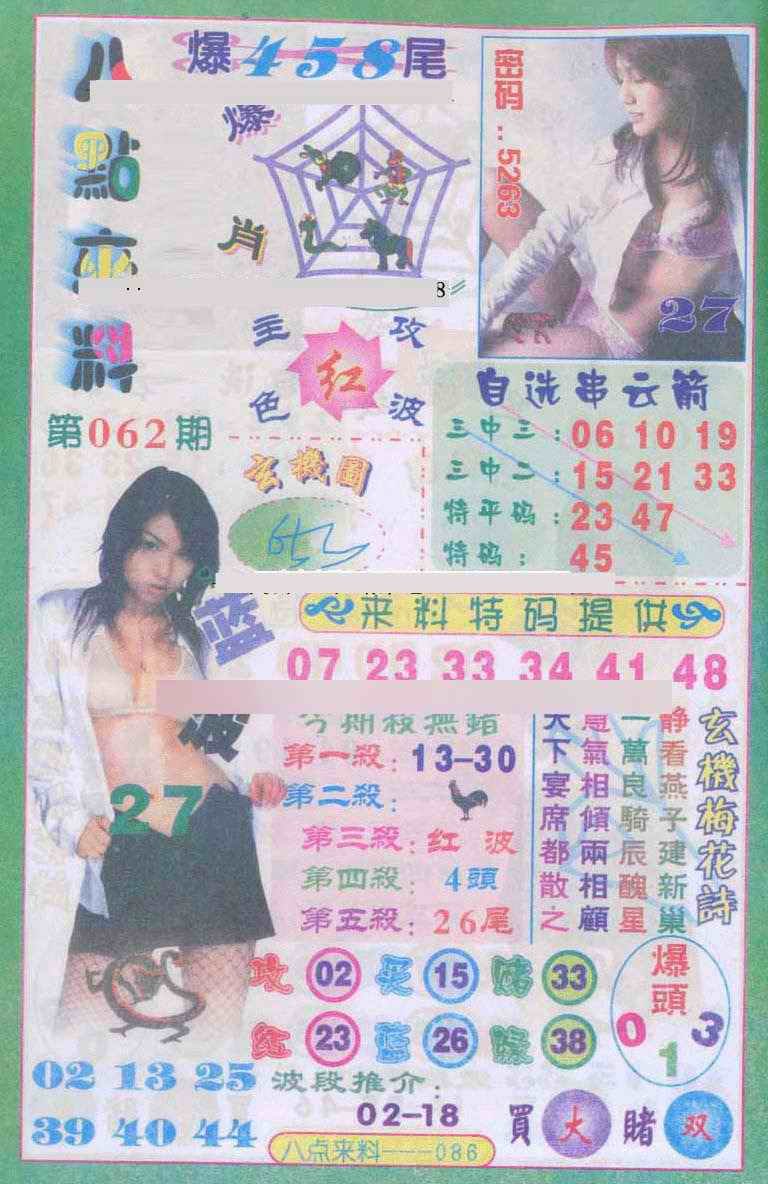 八點來料
爆458尾
爆肖
密码..5263
27
8
主攻
红
色波
第062期
玄機圖
自选串云箭
三中三:06 10 19
三中二:15 21 33
特平码:23 47
特码:45
蓝波
27
来料特码提供
07 23 33 34 41 48
今期殺無錯
第一殺:13-30
第二殺:
第三殺:红波
第四殺:4頭
第五殺:26尾
玄機梅花詩
静看燕子建新巢
一萬良騎辰醜星
意氣相傾兩相顧
天下宴席都散之
攻 02 买 15 赌 33
红 23 蓝 26 綠 38
爆頭
0 1 3
02 13 25
39 40 44
波段推介:
02-18
買大 賭双
八点来料---086